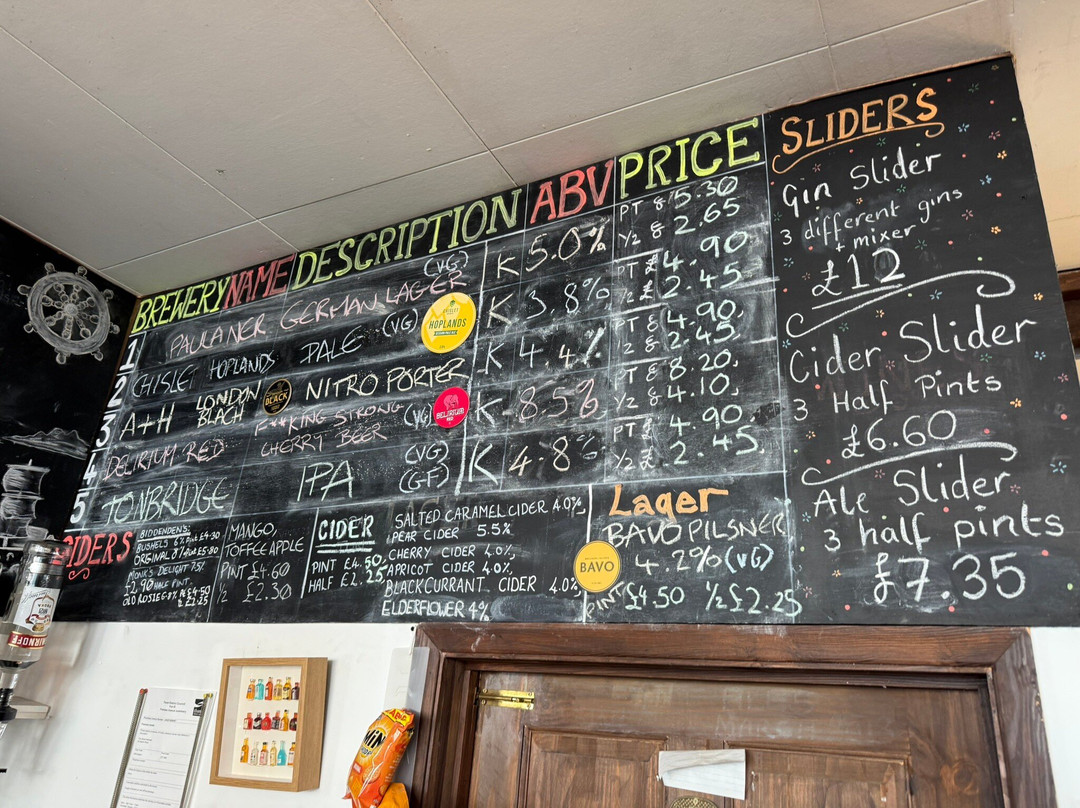 BREWERY NAME DESCRIPTION ABV PRICE
1 PAULANER GERMAN LAGER (VG) K 5.0% PT £ 5.30
½ 2.65
2 CHISLET HOPLANDS PALE (VG) HOPLANDS K 3.8% PT £ 4.90
½ £ 2.45
3 A+H LONDON BLACH BLACK NITRO PORTER K 4.4% PT £ 4.90.
½ £ 2.45.
4 DELIRIUM RED F**KING STRONG CHERRY BEER (VG) DELIRIUM K 8.5% PT £ 8.20.
½ £ 4.10.
5 TONBRIDGE IPA (VG) (GF) K 4.8% PT £ 4.90
½ £ 2.45.
CIDERS
BIDDENDEN'S:
BUSHELS 6% Pint £4.30
ORIGINAL 8% Pint £5.80
MONK'S DELIGHT 7.5%
£2.90 HALF PINT.
OLD ROSIE 6.8% Pt £4.50
½ £2.25
MANGO,
TOFFEE APPLE
PINT £4.60
½ £2.30
CIDER
PINT £4.50.
HALF £2.25
SALTED CARAMEL CIDER 4.0%
PEAR CIDER 5.5%
CHERRY CIDER 4.0%
APRICOT CIDER 4.0%
BLACKCURRANT CIDER 4.0%
ELDERFLOWER 4%
Lager
BAVO PILSNER
BAVO
4.2% (VG)
PINT £4.50 ½ £2.25
SLIDERS
Gin Slider
3 different gins
+ mixer
£12
Cider Slider
3 Half Pints
£6.60
Ale Slider
3 half pints
£7.35
SMIRNOFF